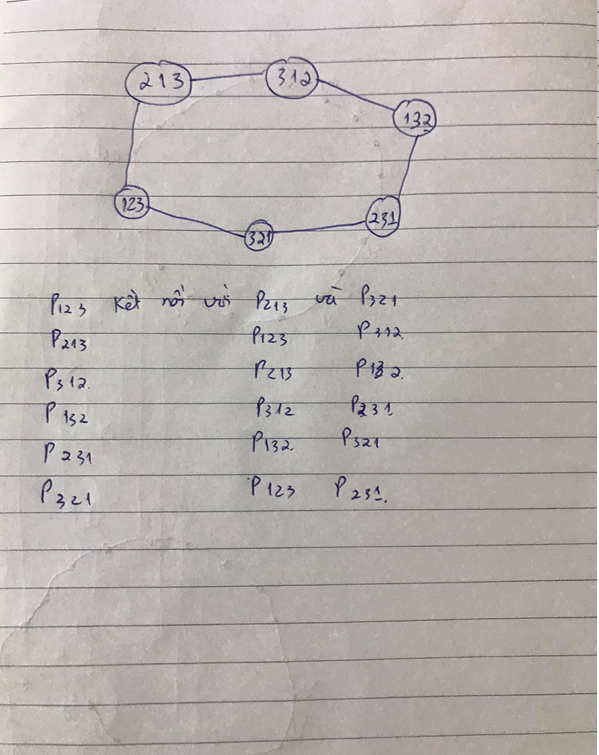 213 312
132
123
231
321
P123 kết nối với P213 và P321
P213 P123 P312.
P312. P213 P132.
P132 P312 P231
P231 P132 P321
P321 P123 P231.